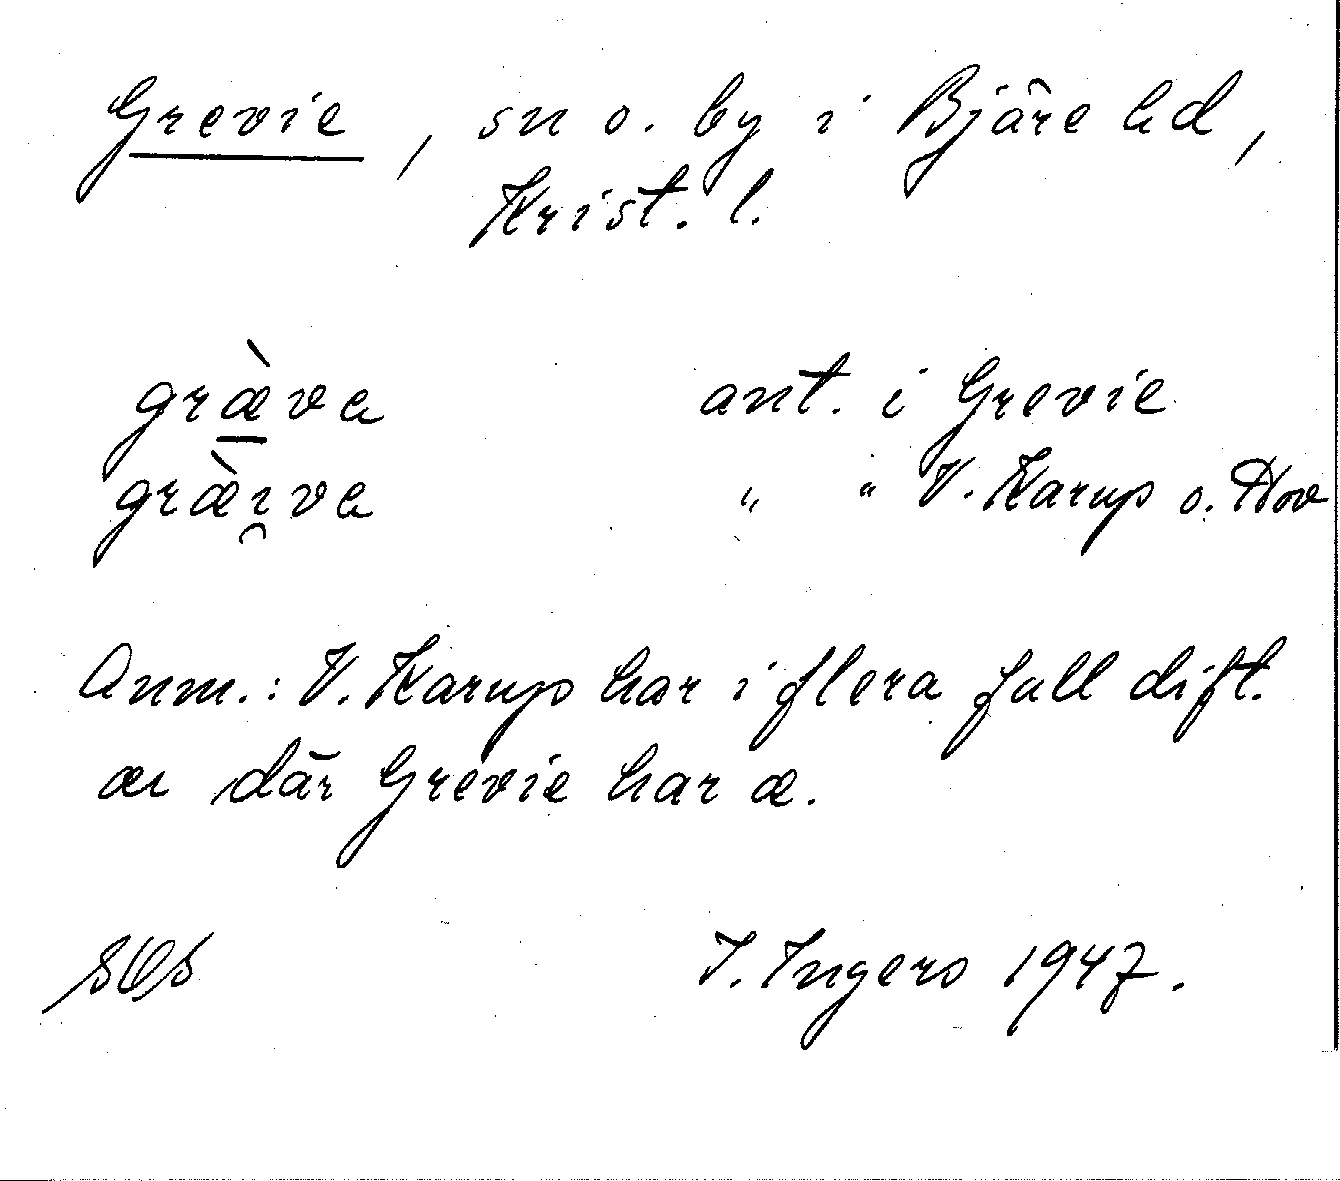 Grevie, sn o. by i Bjäre hd,
Krist. l.
græ̀va ant. i Grevie
græ̀ɪ̯va " " V. Karup o. Hov
Anm.: V. Karup har i flera fall dift.
æɪ där Grevie har æ.
I. Ingers 1947.